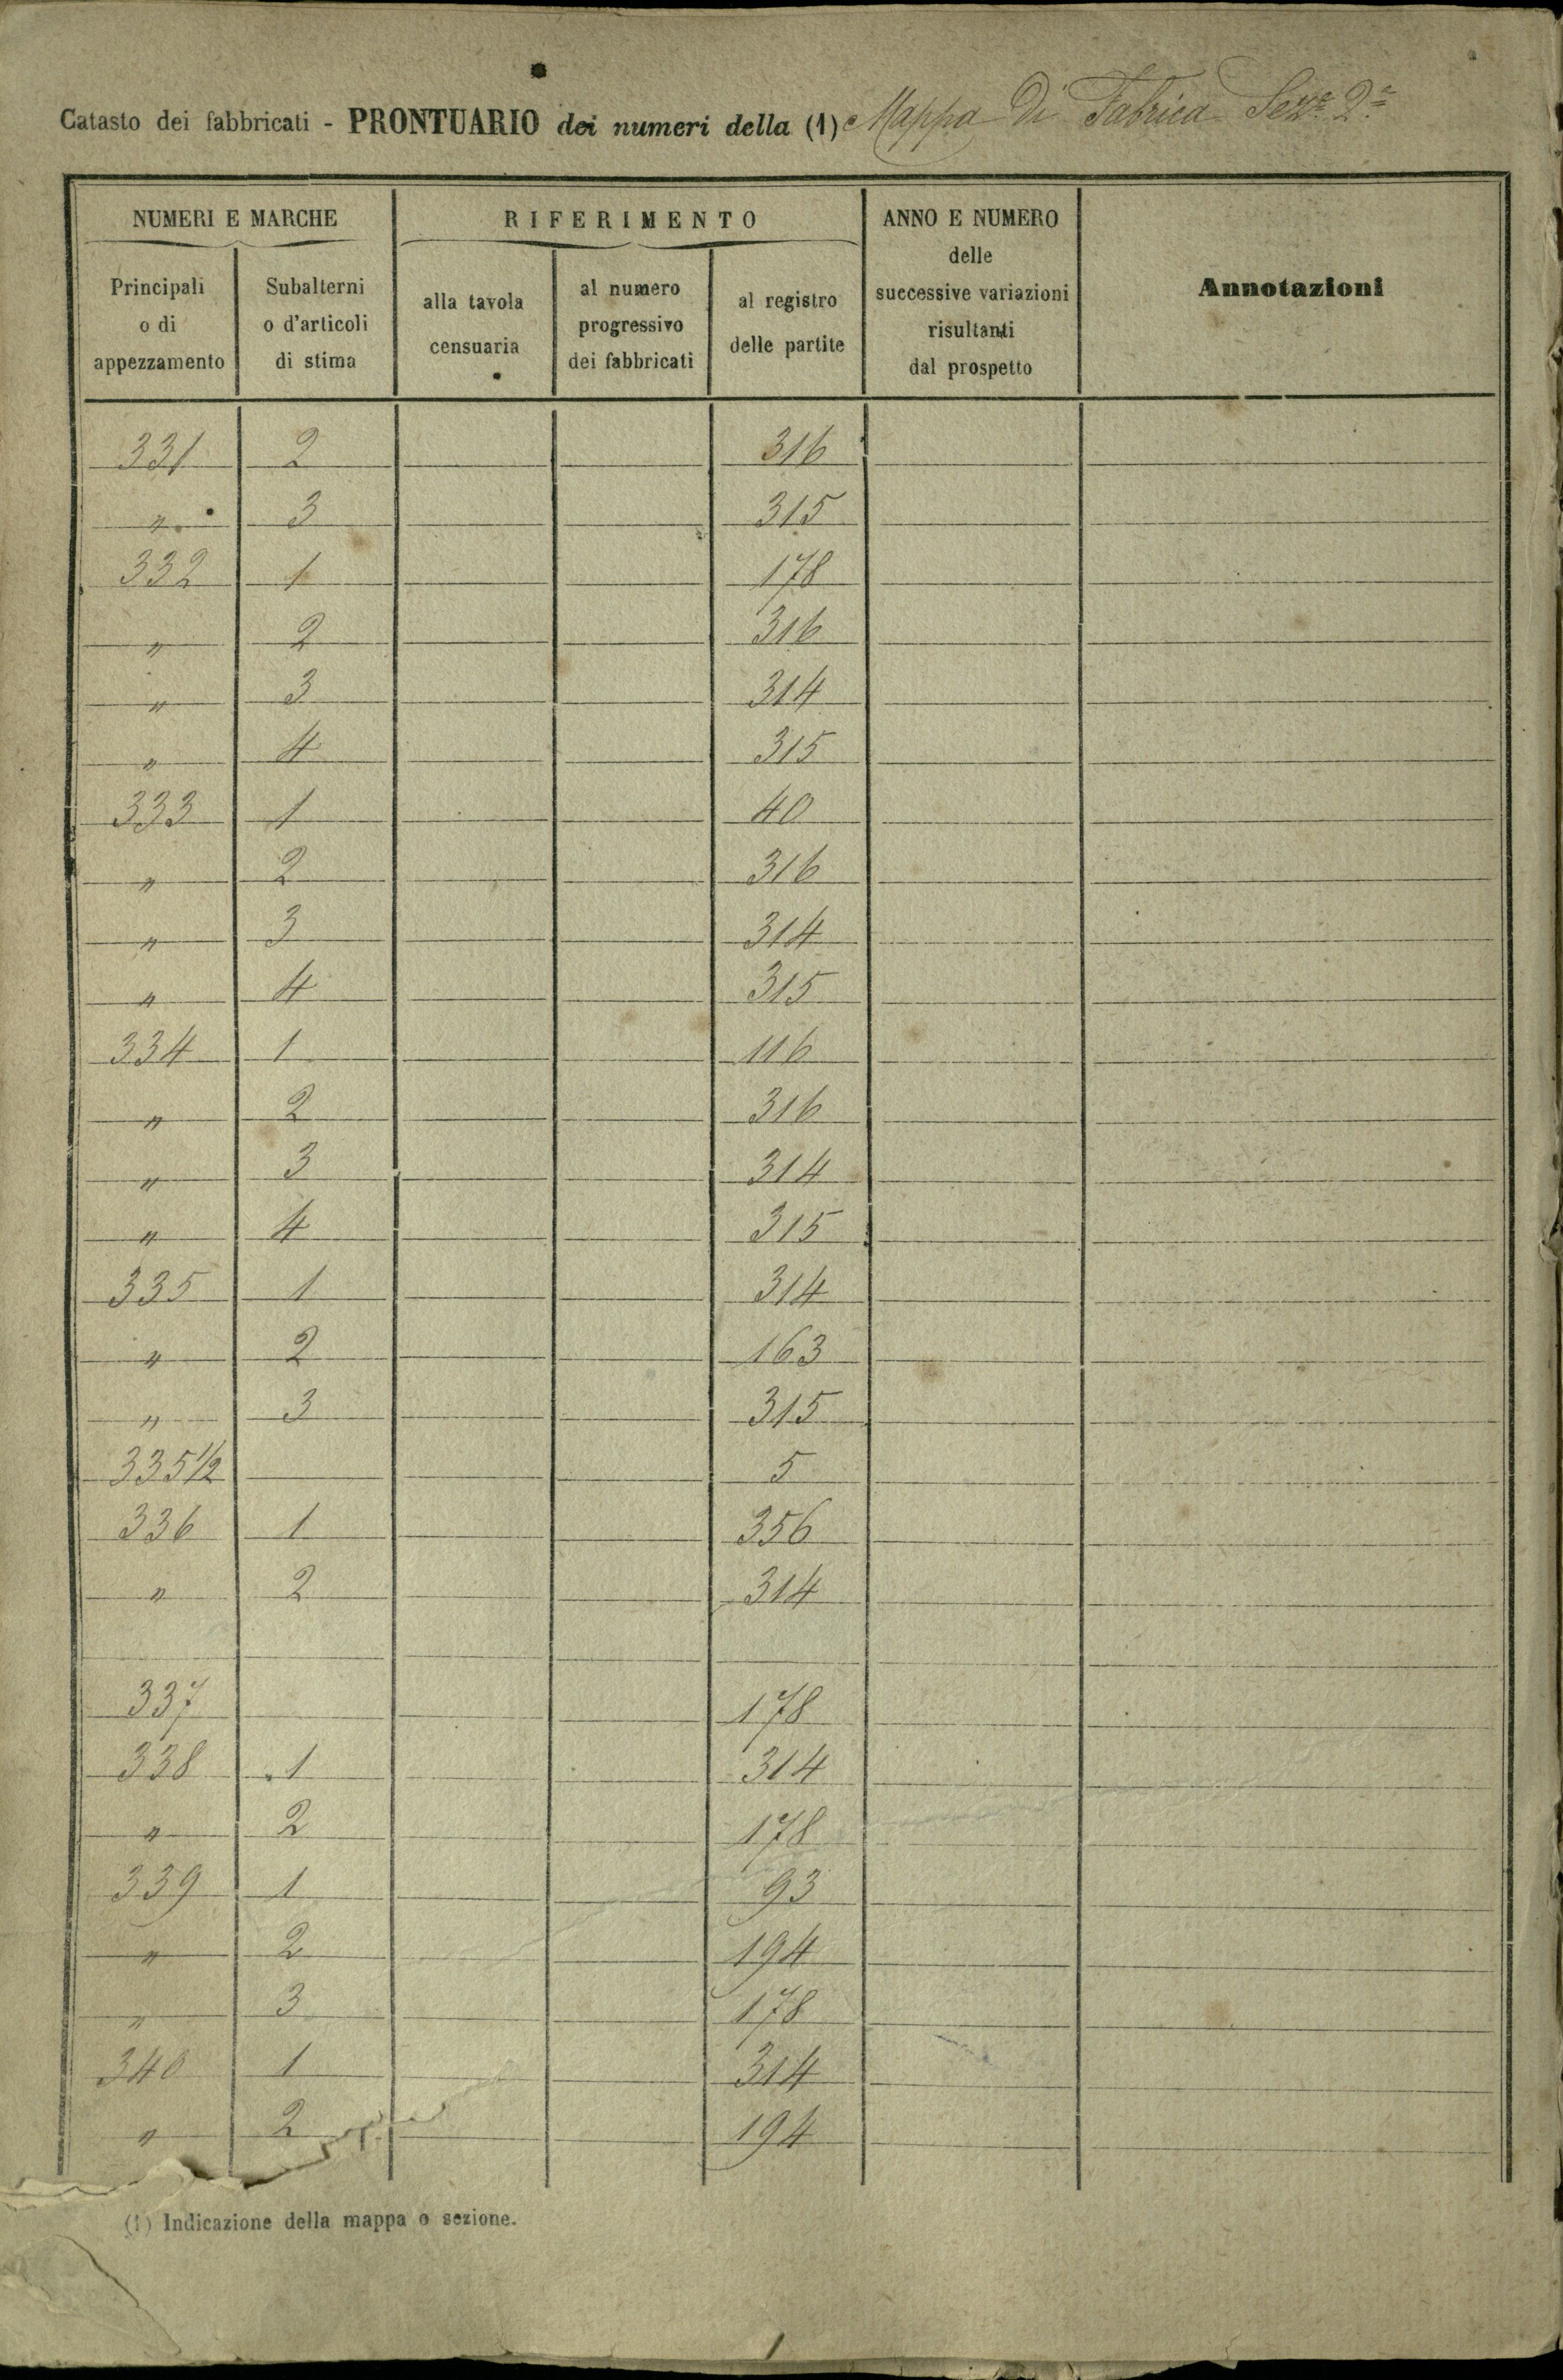 Catasto dei fabbricati - PRONTUARIO dei numeri della (1) Mappa Di Fabrica Sezne 2a
NUMERI E MARCHE
RIFERIMENTO
ANNO E NUMERO
delle
successive variazioni
risultanti
dal prospetto
Annotazioni
Principali
o di
appezzamento
Subalterni
o d'articoli
di stima
alla tavola
censuaria
al numero
progressivo
dei fabbricati
al registro
delle partite
331 2 316
" 3 315
332 1 178
" 2 316
" 3 314
" 4 315
333 1 40
" 2 316
" 3 314
" 4 315
334 1 116
" 2 316
" 3 314
" 4 315
335 1 314
" 2 163
" 3 315
335 1/2 5
336 1 356
" 2 314
337 178
338 1 314
" 2 178
339 1 93
" 2 194
" 3 178
340 1 314
" 2 194
(1) Indicazione della mappa o sezione.